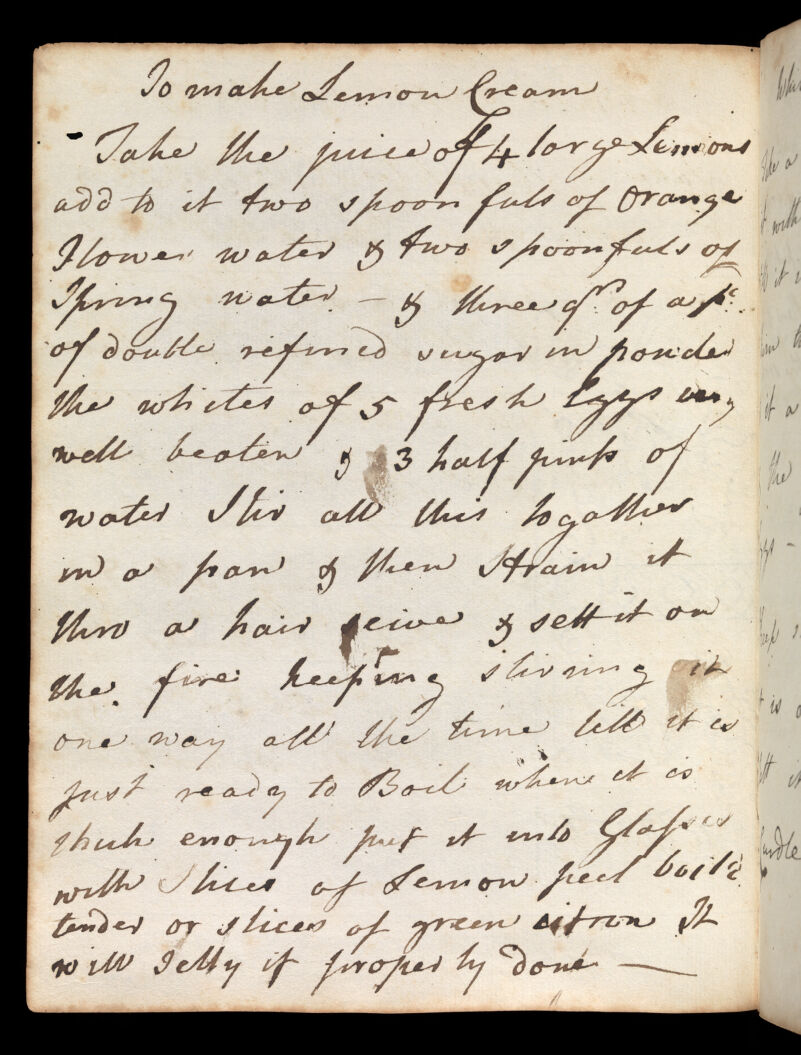 To make Lemon Cream
Take the juice of 4 large Lemons
add to it two spoon fuls of Orange
Flower water & two spoonfuls of
Spring water - & three qrs. of a pd.
of double refined sugar in powder
the whites of 5 fresh Eggs very
well beaten & 3 half pints of
water Stir all this togather
in a pan & then Strain it
thro a hair seive & sett it on
the fire keeping stirring it
one way all the time till it is
just ready to Boil when it is
thick enough put it into Glasses
with Slices of Lemon peel boil'd
tender or slices of green citron It
will Jelly if properly done —